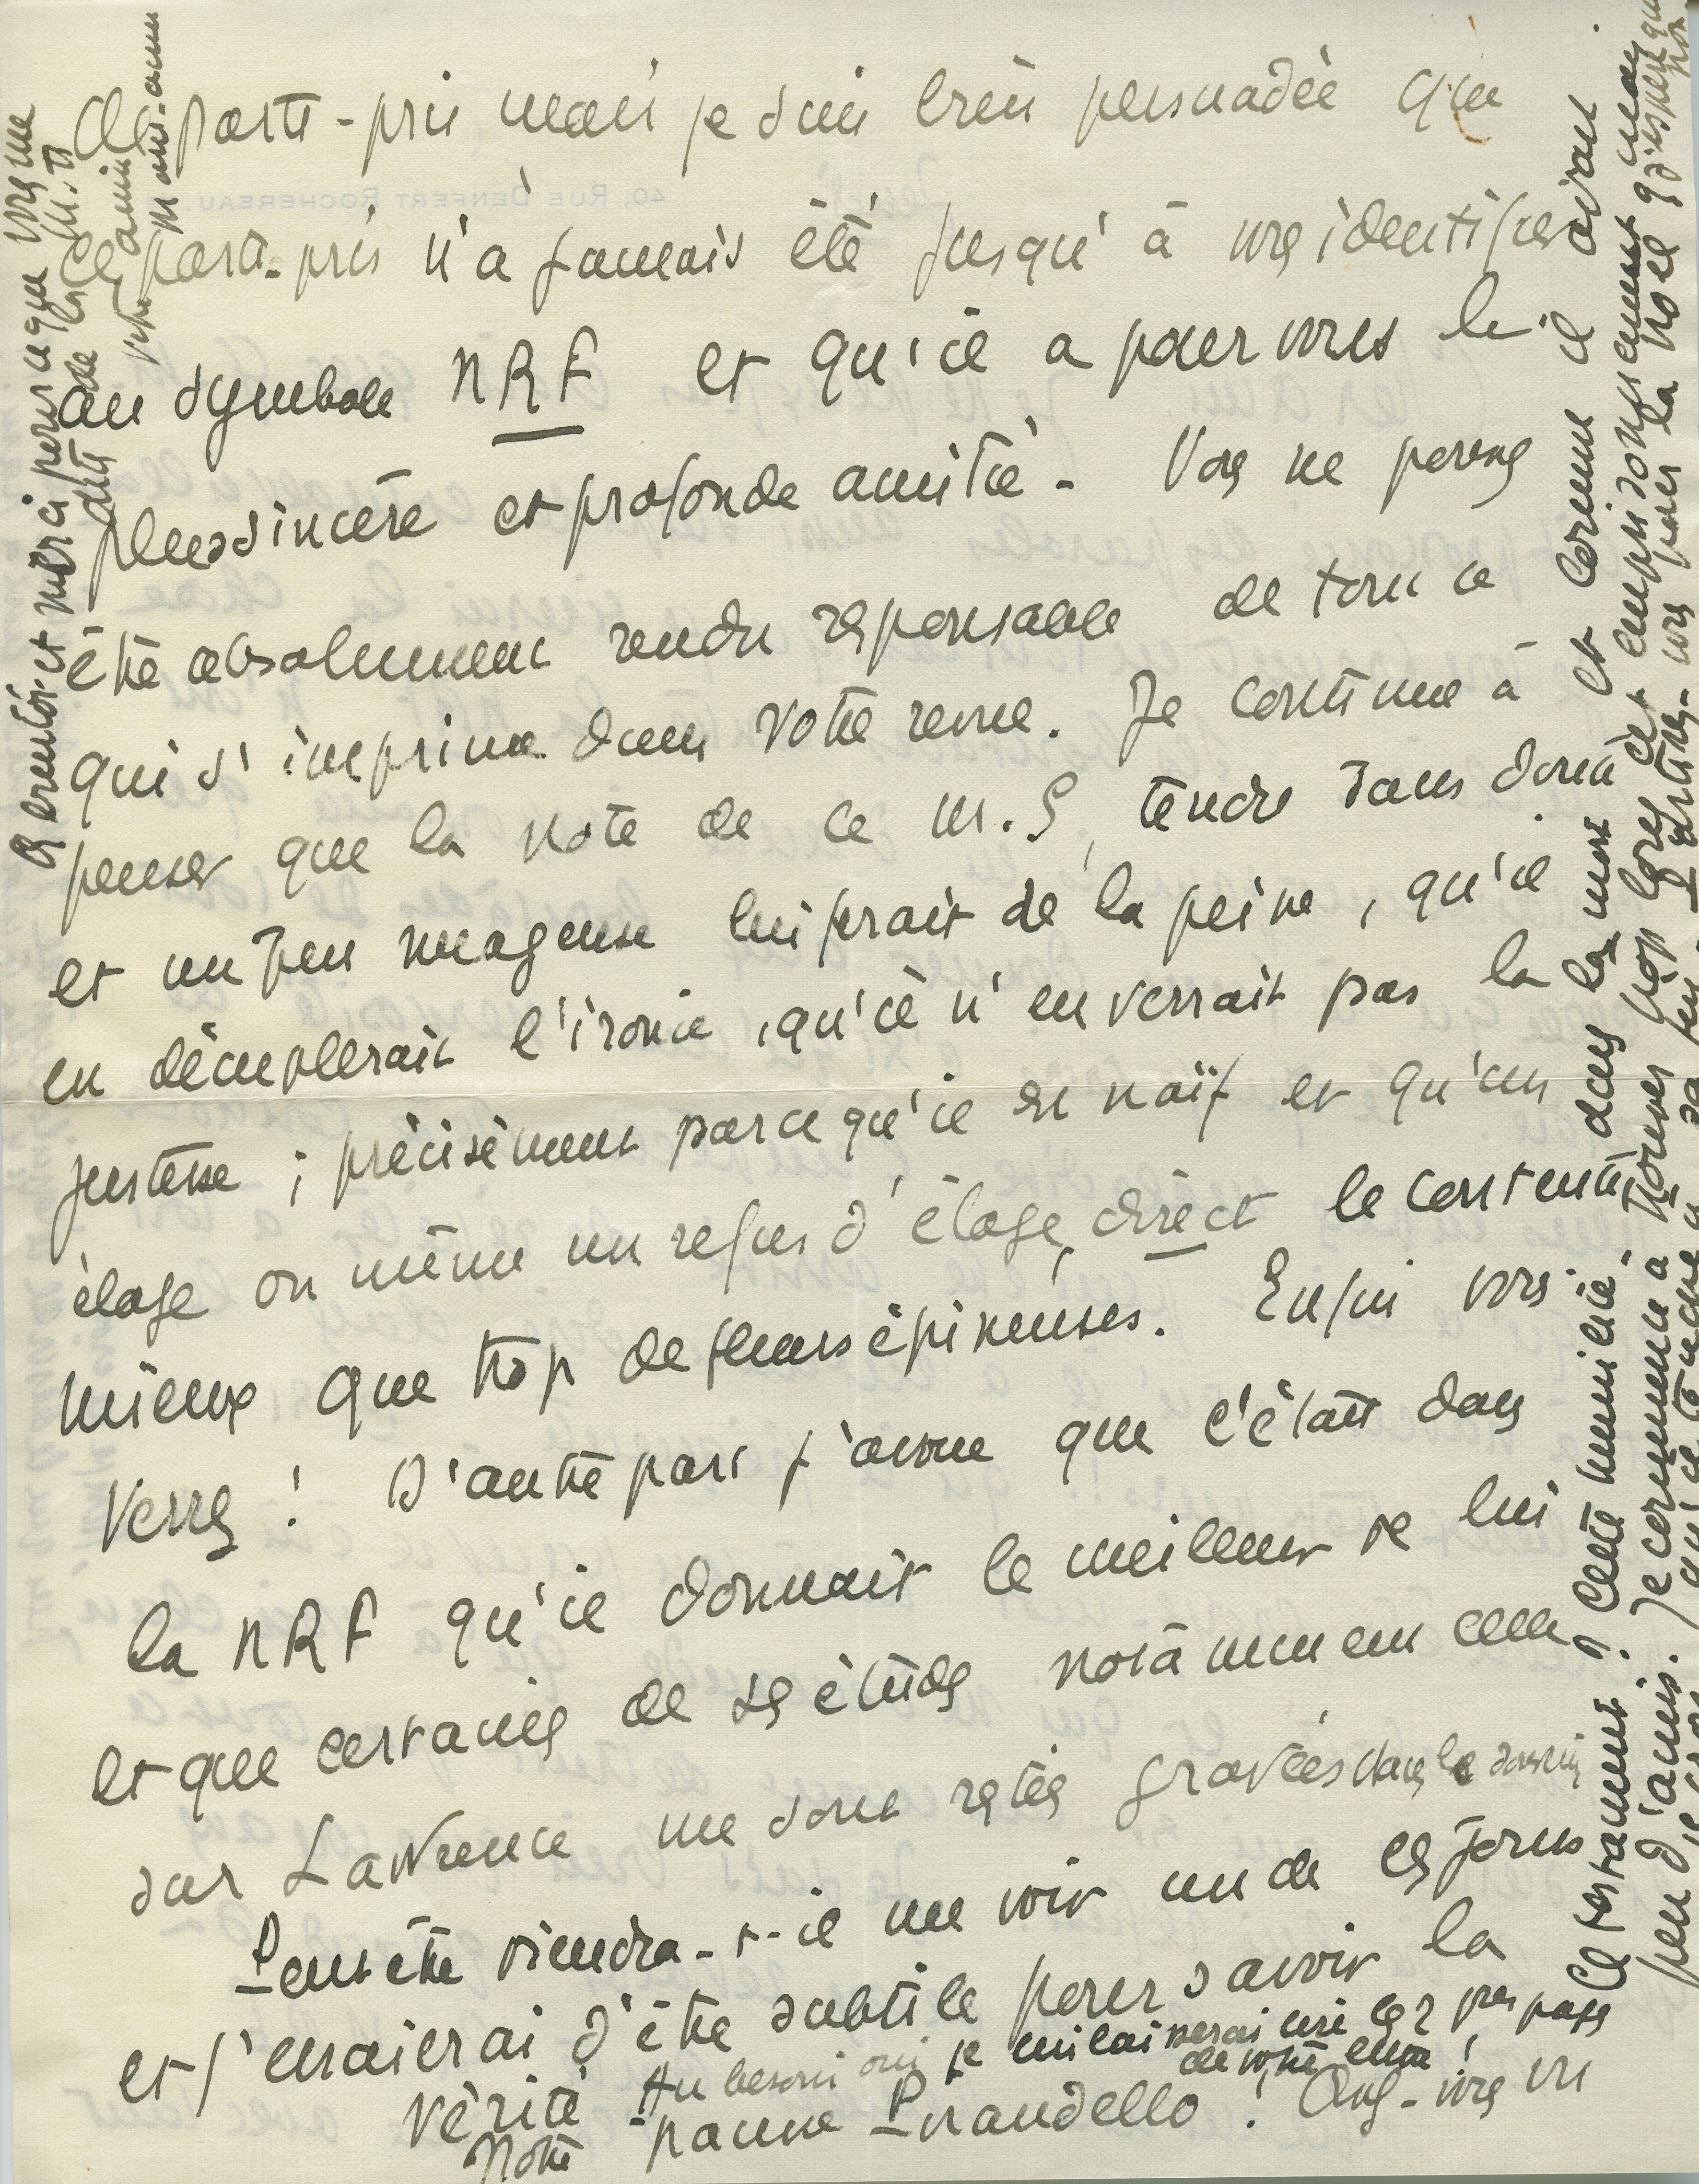 de parti-pris mais je suis bien persuadée que
ce parti-pris n'a jamais été jusqu'à vous identifier
au symbole NRF et qu'il a pour vous la
plus sincère et profonde amitié - Vous ne pouvez
être absolument rendu responsable de tout ce
qui s'imprime dans votre revue. Je continue à
penser que la note de ce M. S, tendre sans doute
et un peu nuageuse lui ferait de la peine, qu'il
en décuplerait l'ironie, qu'il n'en verrait pas la
justesse ; précisément parce qu'il est naïf et qu'un
éloge ou même un refus d'éloge, direct le contente
mieux que trop de fleurs épineuses. Enfin vous
verrez ! D'autre part j'avoue que c'était dans
la NRF qu'il donnait le meilleur de lui
et que certaines de ses études notamment celle
sur Lawrence me sont restées gravées dans le souvenir
Peut être viendra-t-il me voir un de ces jours
et j'essaierai d'être subtile pour savoir la
vérité Au besoin oui je lui laisserai lire les 2 pages
de votre
Notre pauvre Pirandello ! Avez-vous vu
Ce testament ? Cette humilité. dans la mort et comme il avait
peu d'amis. Je commence à trouver trop longs cet emprisonnement
sa fin - vous pour la noël j'espère que non.
A bientôt et merci parce que vous me
dites de la M. T
votre amie